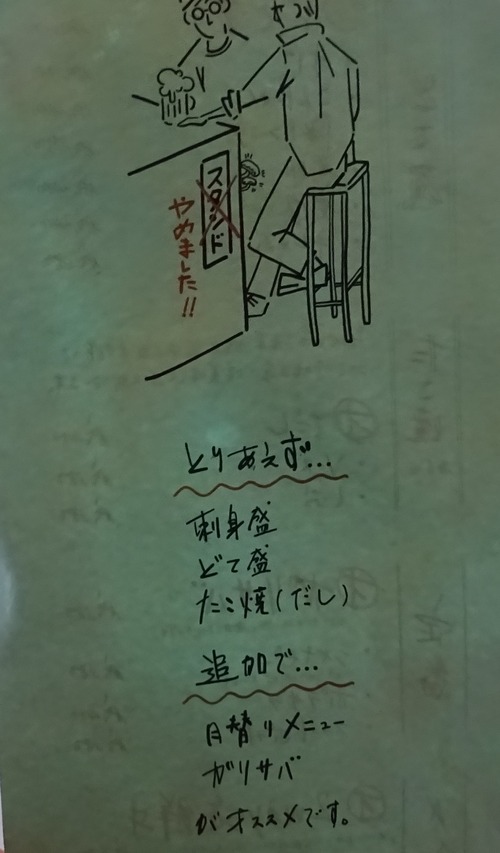 スタンド
やめました!!
とりあえず...
刺身盛
どて盛
たこ焼(だし)
追加で...
月替りメニュー
ガリサバ
がオススメです。